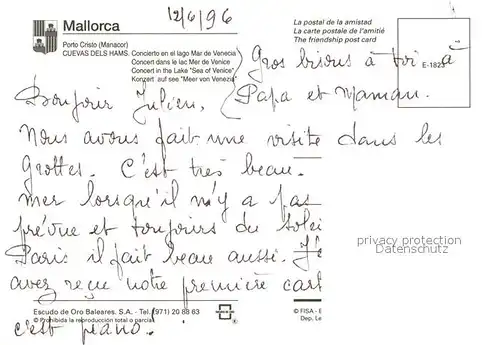 Mallorca
12/6/96
Porto Cristo (Manacor)
CUEVAS DELS HAMS.
Concierto en el lago Mar de Venecia
Concert dans le lac Mer de Venice
Concert in the Lake "Sea of Venice"
Konzert auf see "Meer von Venezia"
La postal de la amistad
La carte postale de l'amitié
The friendship post card
E-1823
Gros bisous à toi à
Papa et Maman.
Bonjour Julien,
Nous avons fait une visite dans les
grottes. C'est très beau.
mer lorsqu'il n'y a pas
prévue et toujours du solei
Paris il fait beau aussi. J'e
avez reçu notre première cart
c'est piano!
privacy protection
Datenschutz
Escudo de Oro Baleares. S.A. - Tel. (971) 20 88 63
© Prohibida la reproducción total o parcial
© FISA - E
Dep. Le